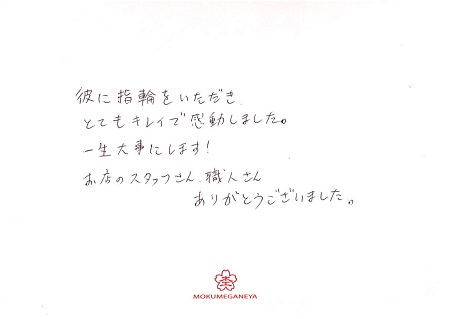 彼に指輪をいただき
とてもキレイで感動しました。
一生大事にします!
お店のスタッフさん、職人さん
ありがとうございました。
MOKUMEGANEYA